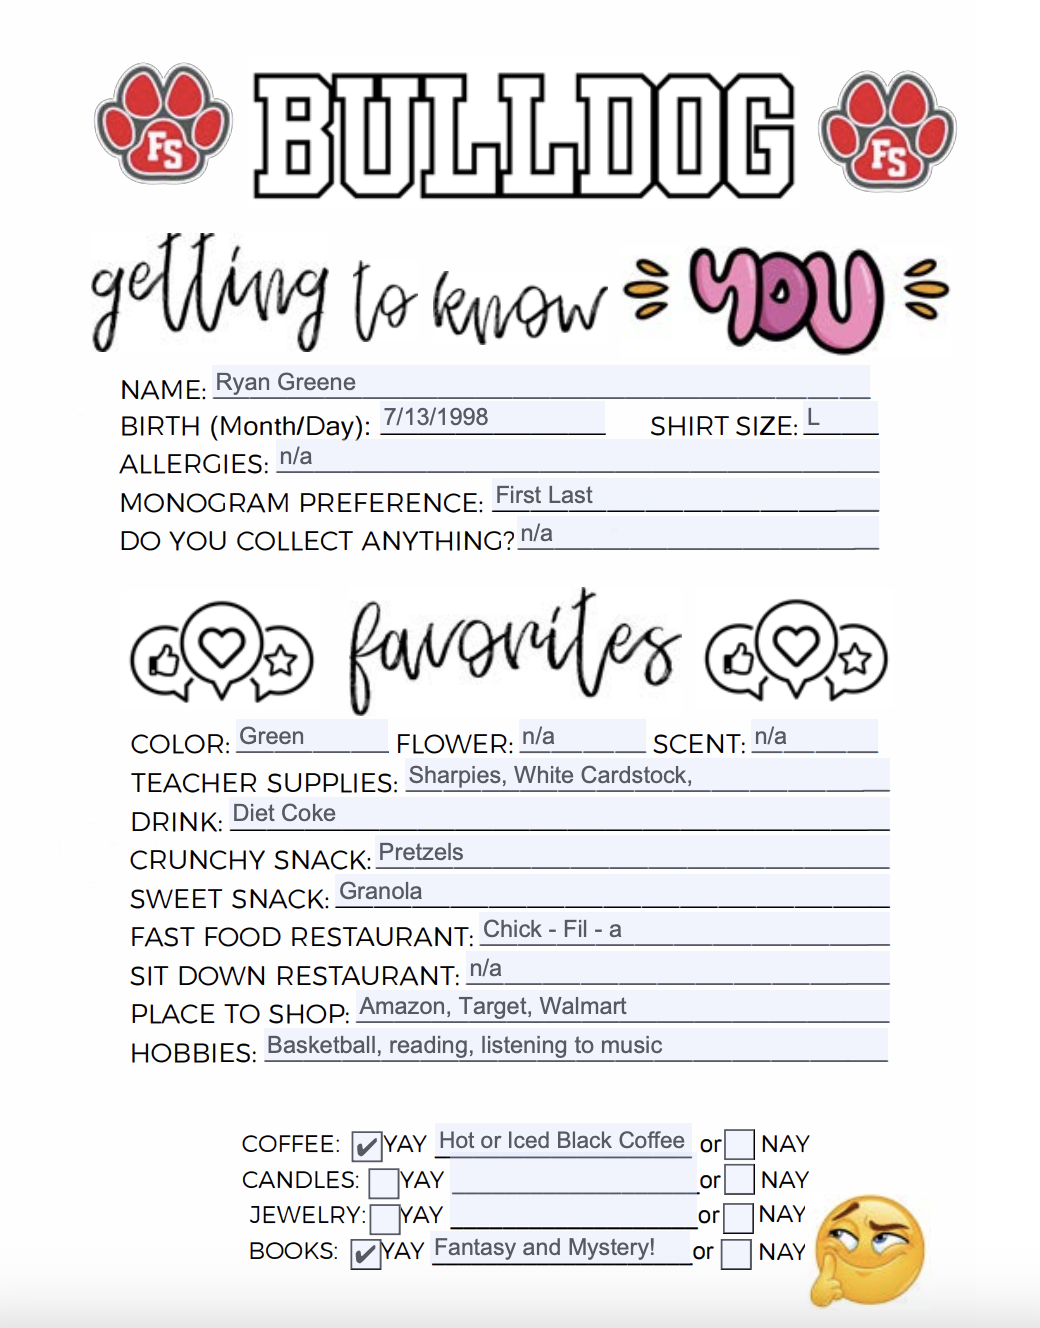 FS BULLDOG FS
getting to know YOU
NAME: Ryan Greene
BIRTH (Month/Day): 7/13/1998 SHIRT SIZE: L
ALLERGIES: n/a
MONOGRAM PREFERENCE: First Last
DO YOU COLLECT ANYTHING? n/a
favorites
COLOR: Green FLOWER: n/a SCENT: n/a
TEACHER SUPPLIES: Sharpies, White Cardstock,
DRINK: Diet Coke
CRUNCHY SNACK: Pretzels
SWEET SNACK: Granola
FAST FOOD RESTAURANT: Chick - Fil - a
SIT DOWN RESTAURANT: n/a
PLACE TO SHOP: Amazon, Target, Walmart
HOBBIES: Basketball, reading, listening to music
COFFEE: ✔ YAY Hot or Iced Black Coffee or NAY
CANDLES: YAY or NAY
JEWELRY: YAY or NAY
BOOKS: ✔ YAY Fantasy and Mystery! or NAY